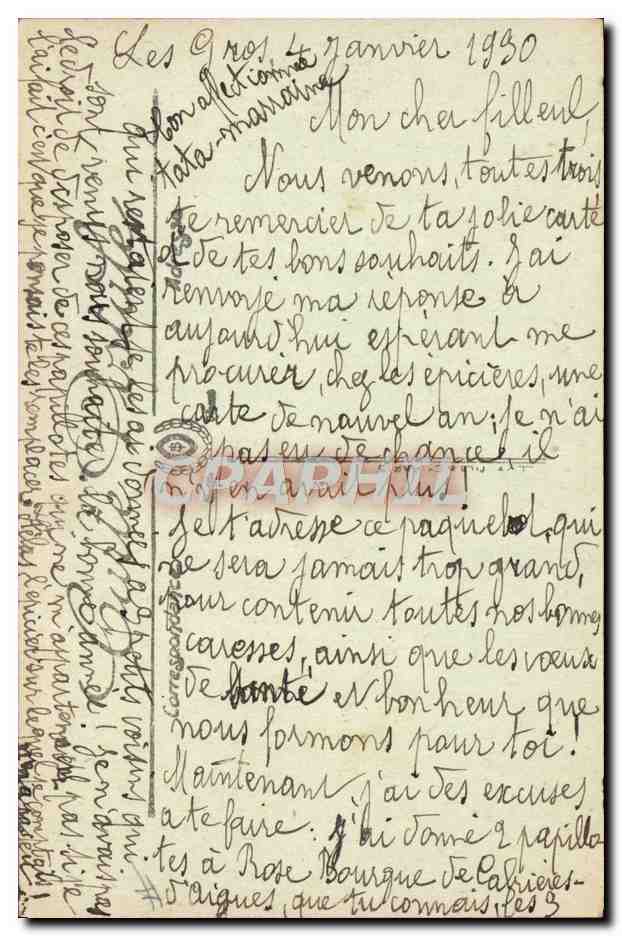 Les Gros 4 Janvier 1930
Mon cher filleul,
Nous venons, toutes trois
te remercier de ta jolie carte
& de tes bons souhaits. J'ai
renvoyé ma réponse à
aujourd'hui espérant me
procurer, chez les épicières, une
carte de nouvel an; je n'ai
pas eu de chance, il
n'y en avait plus!
Je t'adresse ce paquebot, qui
ne sera jamais trop grand,
pour contenir toutes nos bonnes
caresses, ainsi que les vœux
de santé et bonheur que
nous formons pour toi!
Maintenant, j'ai des excuses
a te faire: J'ai donné 2 papillo-
tes à Rose Bourgue de Cabrières-
d'Aigues, que tu connais, les 3
qui restaient je les ai données a 3 petits voisins qui
sont venus nous souhaiter la bonne année! Je n'avais pas
le droit de disposer de ces papillotes qui ne m'appartenaient pas, si je
l'ai fait c'est que je pensais te les remplacer, hélas l'épicier sur lequel je comptais
n'en avait
!
Ton affectionnée
tata-marraine
Correspondance
CPAPHIL